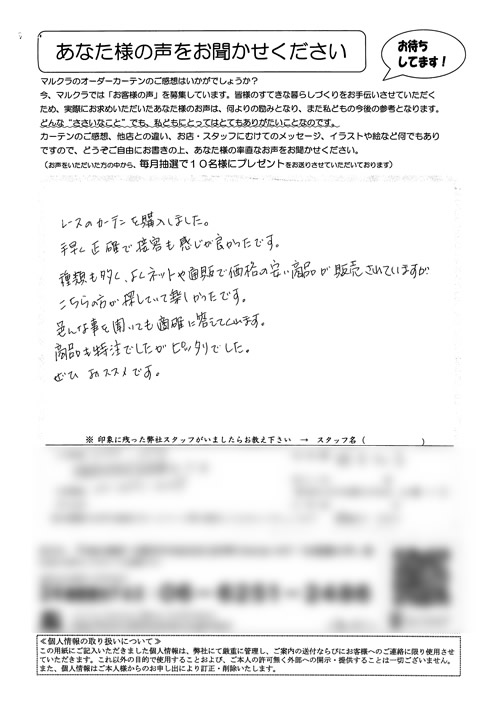 あなた様の声をお聞かせください
お待ち
してます！
マルクラのオーダーカーテンのご感想はいかがでしょうか？
今、マルクラでは「お客様の声」を募集しています。皆様のすてきな暮らしづくりをお手伝いさせていただく
ため、実際にお求めいただいたあなた様のお声は、何よりの励みとなり、また私どもの今後の参考となります。
どんな“ささいなこと”でも、私どもにとってはとてもありがたいことなのです。
カーテンのご感想、他店との違い、お店・スタッフにむけてのメッセージ、イラストや絵など何でもあり
ですので、どうぞご自由にお書きの上、あなた様の率直なお声をお聞かせください。
（お声をいただいた方の中から、毎月抽選で１０名様にプレゼントをお送りさせていただいております）
レースのカーテンを購入しました。
手早く正確で接客も感じが良かったです。
種類も多く、よくネットや通販で価格の安い商品が販売されていますが
こちらの方が探していて楽しかったです。
色んな事を聞いても適確に答えてくれます。
商品も特注でしたがピッタリでした。
ぜひ おススメです。
※ 印象に残った弊社スタッフがいましたらお教え下さい → スタッフ名（ ）
06-6251-2486
≪個人情報の取り扱いについて≫
この用紙にご記入いただきました個人情報は、弊社にて厳重に管理し、ご案内の送付ならびにお客様へのご連絡に限り使用させ
ていただきます。これ以外の目的で使用することおよび、ご本人の許可無く外部への開示・提供することは一切ございません。
また、個人情報はご本人様からのお申し出により訂正・削除いたします。